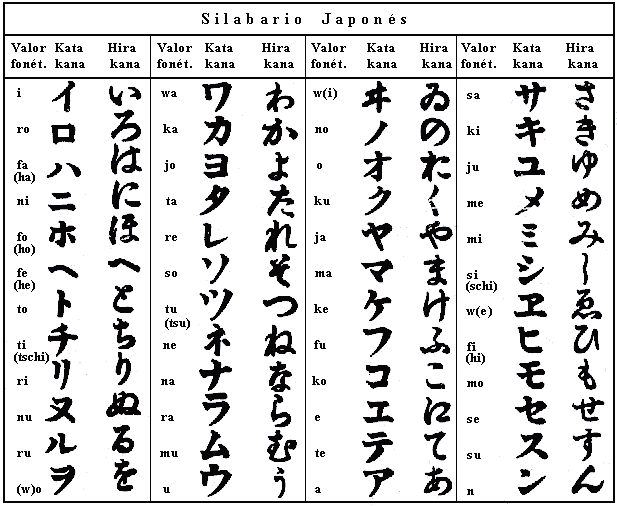 Silabario Japonés
Valor Kata Hira
fonét. kana kana
i イ い
ro ロ ろ
fa ハ は
(ha)
ni ニ に
fo ホ ほ
(ho)
fe ヘ へ
(he)
to ト と
ti チ ち
(tschi)
ri リ り
nu ヌ ぬ
ru ル る
(w)o ヲ を
Valor Kata Hira
fonét. kana kana
wa ワ わ
ka カ か
jo ヨ よ
ta タ た
re レ れ
so ソ そ
tu ツ つ
(tsu)
ne ネ ね
na ナ な
ra ラ ら
mu ム む
u ウ う
Valor Kata Hira
fonét. kana kana
w(i) ヰ ゐ
no ノ の
o オ お
ku ク く
ja ヤ や
ma マ ま
ke ケ け
fu フ ふ
ko コ こ
e エ 𛀁
te テ て
a ア あ
Valor Kata Hira
fonét. kana kana
sa サ さ
ki キ き
ju ユ ゆ
me メ め
mi ミ み
si シ し
(schi)
w(e) ヱ ゑ
fi ヒ ひ
(hi)
mo モ も
se セ せ
su ス す
n ン ん